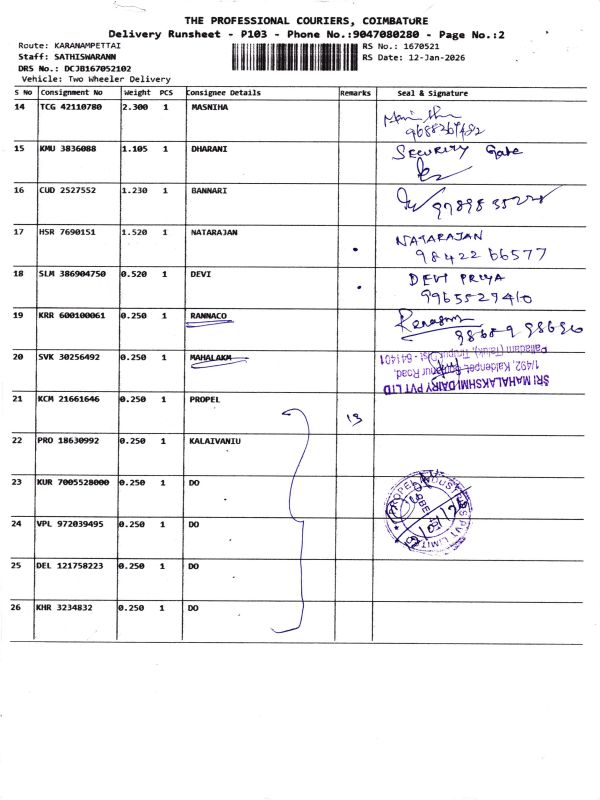 THE PROFESSIONAL COURIERS, COIMBATURE
Delivery Runsheet - P103 - Phone No.:9047080280 - Page No.:2
Route: KARANAMPETTAI RS No.: 1670521
Staff: SATHISWARANN RS Date: 12-Jan-2026
DRS No.: DCJB167052102
Vehicle: Two Wheeler Delivery
S No Consignment No Weight PCS Consignee Details Remarks Seal & Signature
14 TCG 42110780 2.300 1 MASNIHA
15 KMU 3836088 1.105 1 DHARANI SECURITY Gate
16 CUD 2527552 1.230 1 BANNARI
17 HSR 7690151 1.520 1 NATARAJAN NATARAJAN
98422 66577
18 SLM 386904750 0.520 1 DEVI DEVI PRIYA
9965527410
19 KRR 600100061 0.250 1 RANNACO
20 SVK 30256492 0.250 1 MAHALAKM
SRI MAHALAKSHMI DAIRY PVT LTD
21 KCM 21661646 0.250 1 PROPEL 13
22 PRO 18630992 0.250 1 KALAIVANIU
23 KUR 7005528000 0.250 1 DO
24 VPL 972039495 0.250 1 DO
25 DEL 121758223 0.250 1 DO
26 KHR 3234832 0.250 1 DO